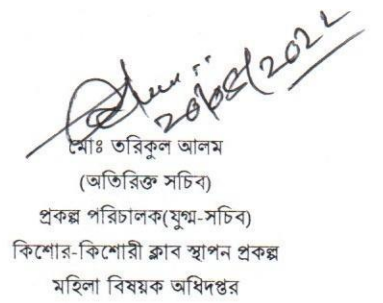 মোঃ তরিকুল আলম
(অতিরিক্ত সচিব)
প্রকল্প পরিচালক(যুগ্ম-সচিব)
কিশোর-কিশোরী ক্লাব স্থাপন প্রকল্প
মহিলা বিষয়ক অধিদপ্তর